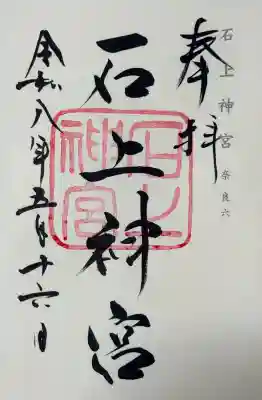 石上神宮 奈良六
奉拝
石上神宮
石上神宮
令和八年五月十六日